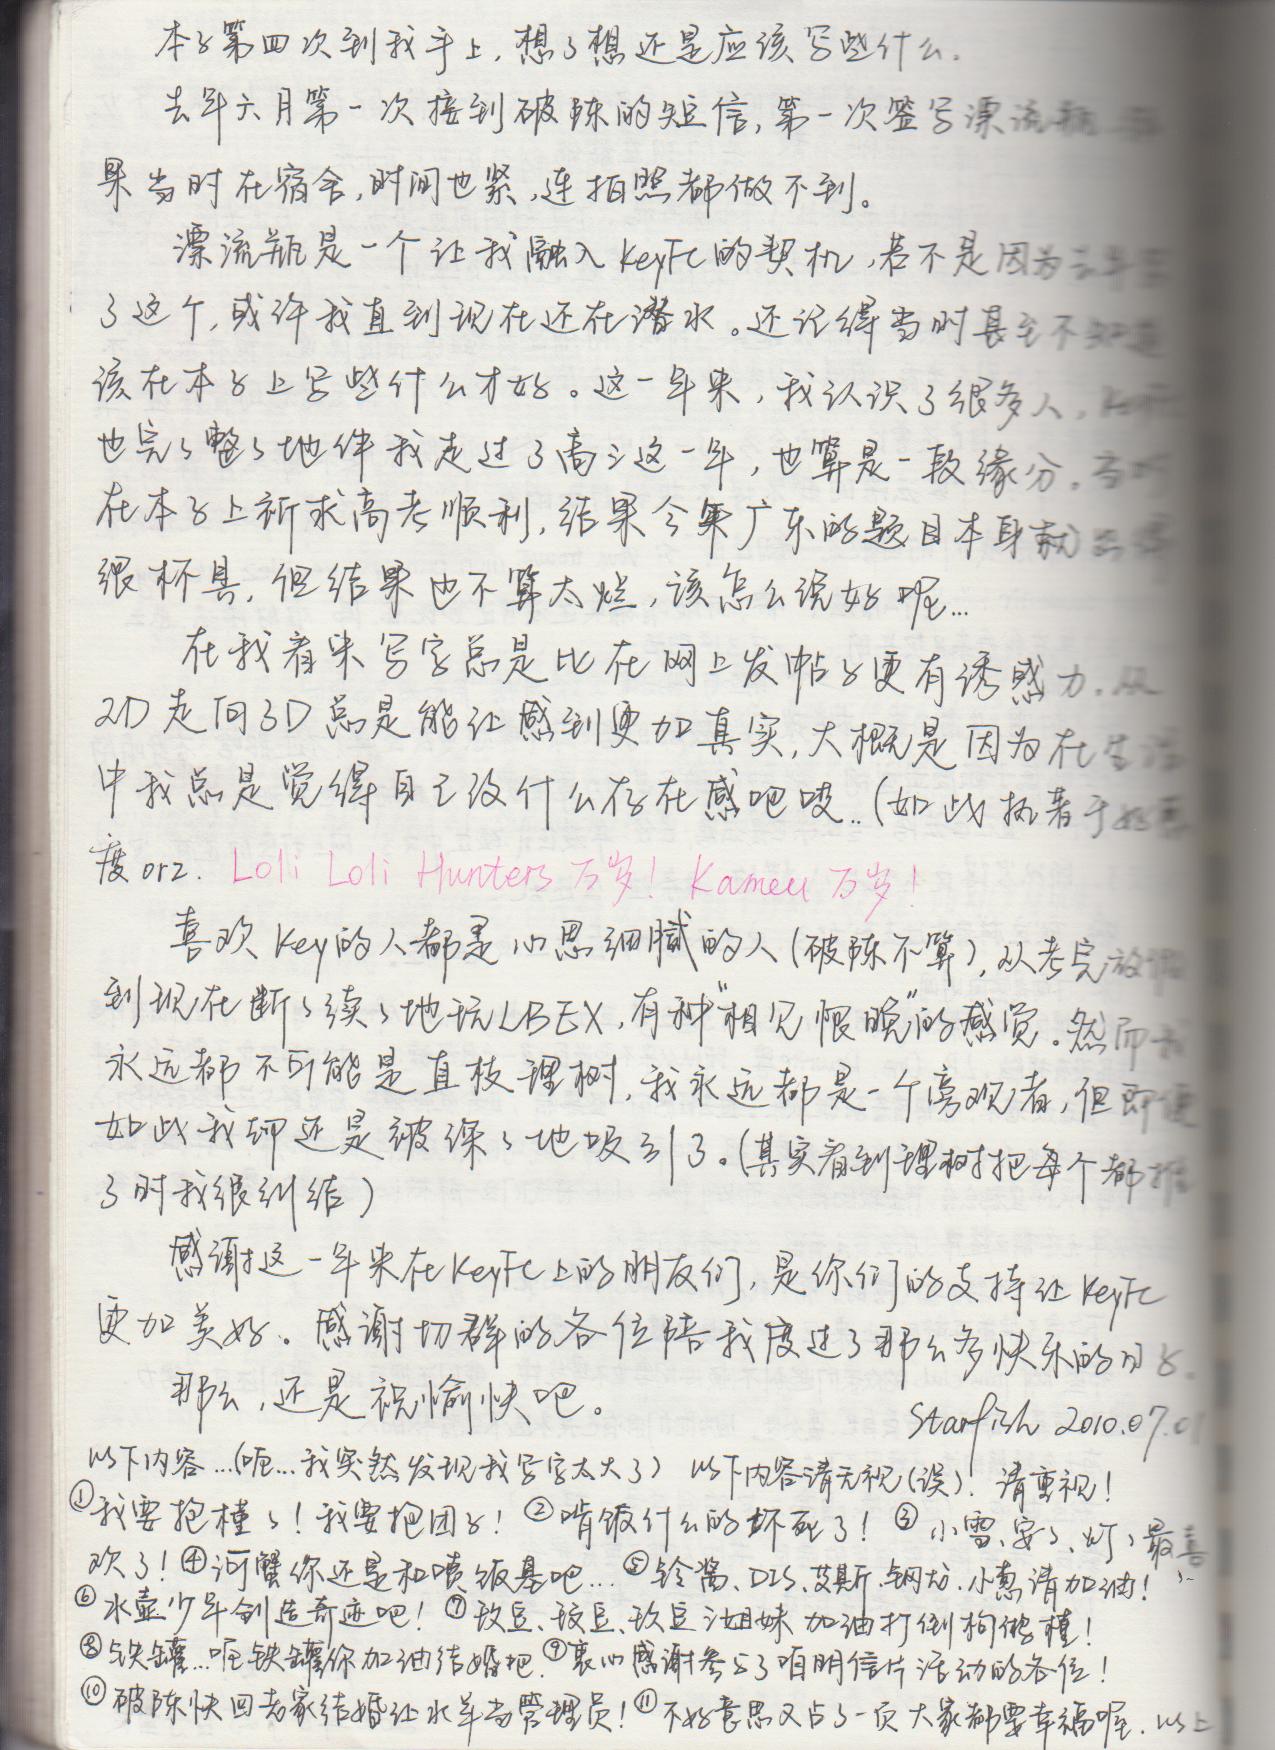 本子第四次到我手上，想了想还是应该写些什么。
去年六月第一次接到破陈的短信，第一次签写漂流瓶
果当时在宿舍，时间也紧，连拍照都做不到。
漂流瓶是一个让我融入KeyFC的契机，若不是因为去年
了这个，或许我直到现在还在潜水。还记得当时甚至不知道
该在本子上写些什么才好。这一年来，我认识了很多人，KeyFC
也完々整々地伴我走过了高三这一年，也算是一段缘分。当时
在本子上祈求高考顺利，结果今年广东的题目本身就
很杯具，但结果也不算太烂，该怎么说好呢…
在我看来写字总是比在网上发帖子更有诱惑力，从
2D走向3D总是能让感到更加真实，大概是因为在生活
中我总是觉得自己没什么存在感吧吱..（如此执着于好感
度orz. Loli Loli Hunters万岁！Kameu万岁！
喜欢Key的人都是心思细腻的人（破陈不算），从考完放假
到现在断々续々地玩LBEX，有种"相见恨晚"的感觉。然而我
永远都不可能是直枝理树，我永远都是一个旁观者，但即便
如此我却还是被深々地吸引了。（其实看到理树把每个都推
了时我很纠结）
感谢这一年来在KeyFC上的朋友们，是你们的支持让KeyFC
更加美好。感谢切群的各位陪我度过了那么多快乐的日子。
那么，还是祝愉快吧。
Starfish 2010.07.01
以下内容…（呃…我突然发现我写字太大了） 以下内容请无视（误）！请重视！
①我要抱槿々！我要抱团子！ ②啃饭什么的坏死了！ ③小雪、安々、灯々最喜
欢了！④河蟹你还是和喷饭基吧… ⑤铃酱、DIS、艾斯、钢坊、小葱请加油！
⑥水壶少年创造奇迹吧！ ⑦玫豆、玟豆、玖豆三姐妹加油打倒枸杞槿！
⑧铁罐…呃铁罐你加油结婚吧。⑨衷心感谢参与了咱明信片活动的各位！
⑩破陈快回老家结婚让水羊当管理员！⑪不好意思又占了一页大家都要幸福喔. 以上